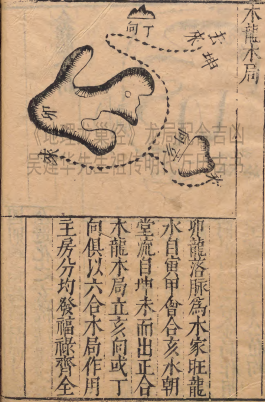 木龍木局
丁向
坤
未
卯
龙局四合吉凶
吴建华先生祖传明代万历古书
卯龍落脈爲木家旺龍
水自寅甲會合亥水朝
堂流自坤未而出正合
木龍木局立亥向或丁
向俱以六合木局作用
主房分均發福祿齊全